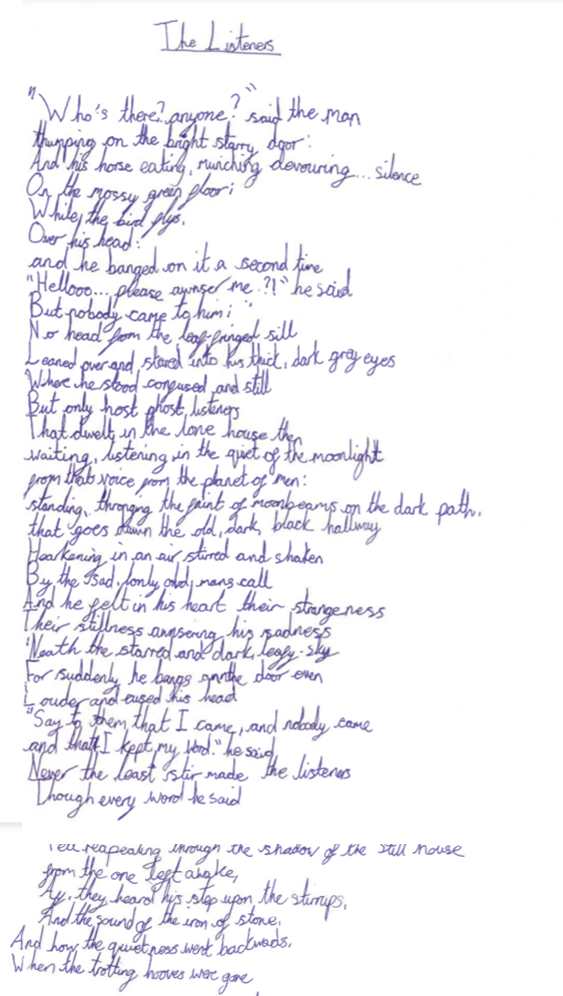 The Listeners
"Who's there? anyone?" said the man
thumping on the bright starry door:
And his horse eating, munching devouring... silence
On the mossy green floor;
While, the bird flys.
Over his head:
and he banged on it a second time
"Hellooo... please awnser me ?!" he said
But nobody came to him;
No head from the leaf-fringed sill
Leaned over and, stared into his thick, dark grey eyes
Where he stood confused, and still
But only host ghost, listeners
That dwelt in the lone house then
waiting, listening in the quiet of the moonlight
from that voice from the planet of men:
standing, thronging the faint of moonbeams on the dark path,
that goes down the old, dark, black hallway
Hearkening in an air stirred and shaken
By the sad, lonly old, mans call
And he felt in his heart their strangeness
Their stillness annsering his sadness
'Neath the starred and dark, leafy-sky
For suddenly he bangs on the door even
Louder and his head
"Say to them that I came, and nobody came
and that I kept, my word." he said,
Never the least stir made the listeners
Though every word he said
Fell reapeating through the shadow of the still house
from the one left awake,
Ay, they heard his step upon the stirrups,
And the sound of the iron of stone,
And how the quietness went backwads,
When the trotting hooves were gone